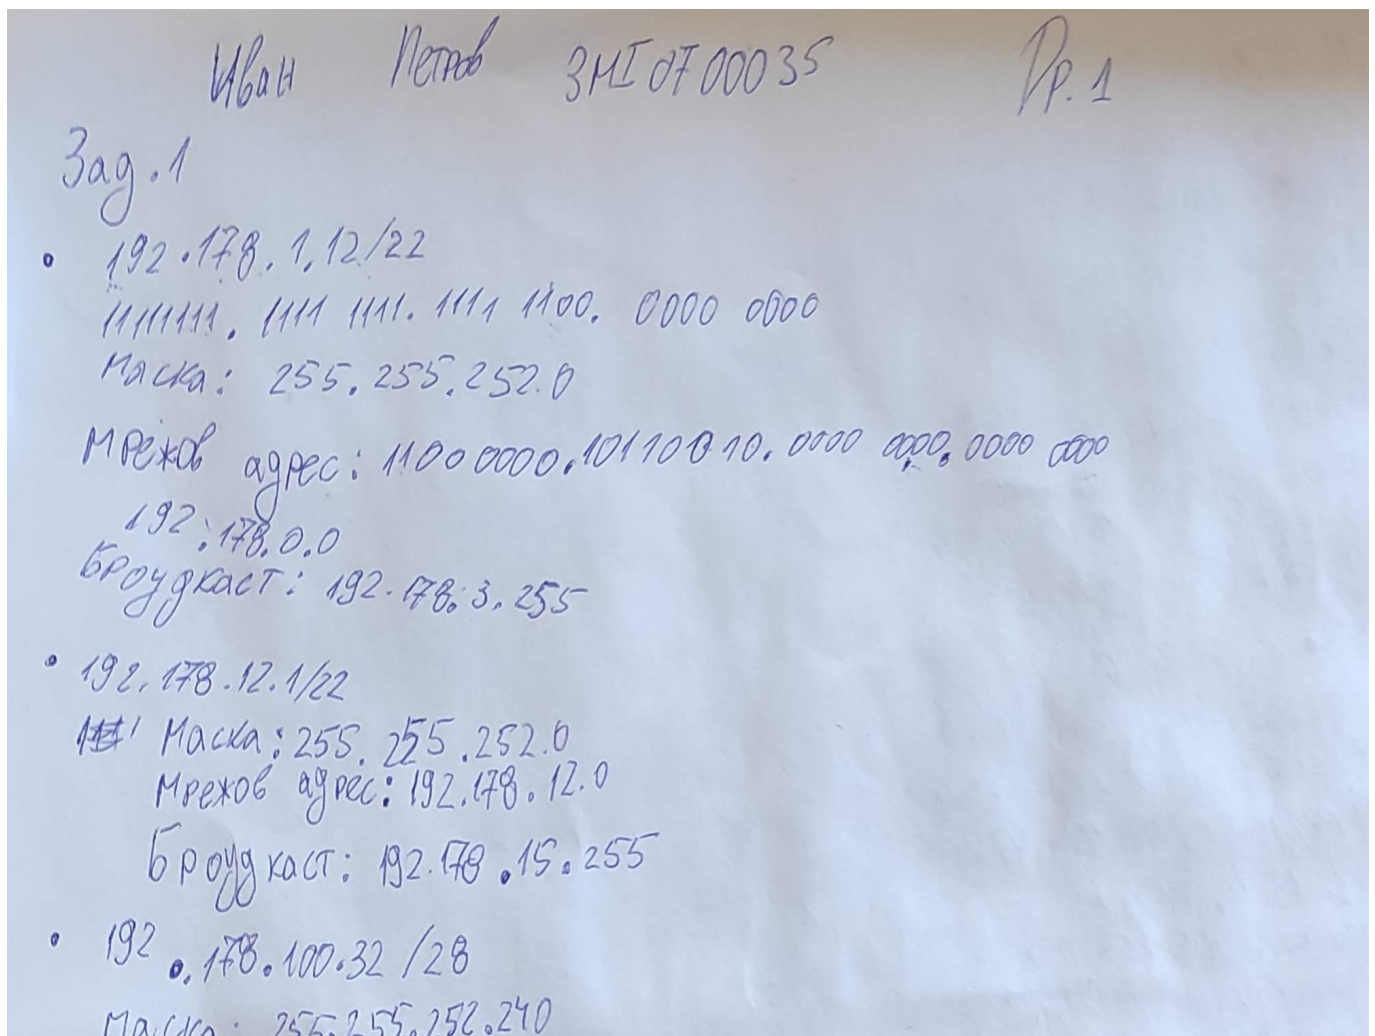 Иван Петров 3МI0700035 Гр. 1
Зад. 1
• 192.178.1.12/22
11111111. 1111 1111. 1111 1100. 0000 0000
Маска: 255.255.252.0
Мрежов адрес: 11000000.10110010.0000 0000.0000 0000
192.178.0.0
Броудкаст: 192.178.3.255
• 192.178.12.1/22
Маска: 255.255.252.0
Мрежов адрес: 192.178.12.0
Броудкаст: 192.178.15.255
• 192.178.100.32 /28
Маска: 255.255.252.240